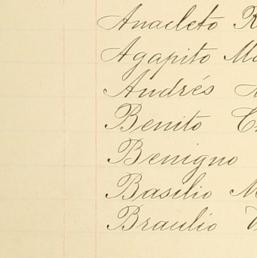 Anacleto R
Agapito Mo
Andrés
Benito C
Benigno
Basilio M
Braulio V